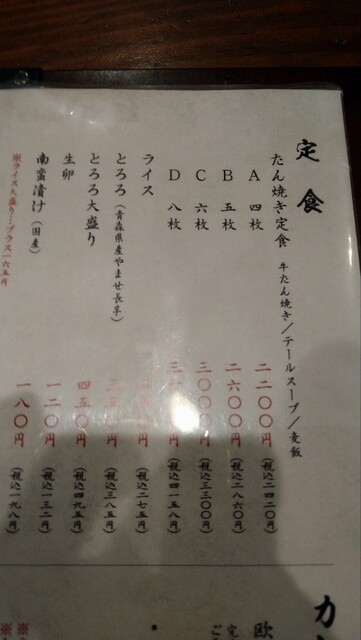 定食
たん焼き定食 牛たん焼き/テールスープ/麦飯
A 四枚 二二〇〇円 (税込二四二〇円)
B 五枚 二六〇〇円 (税込二八六〇円)
C 六枚 三〇〇〇円 (税込三三〇〇円)
D 八枚 (税込四一五八円)
ライス (税込二七五円)
とろろ(青森県産やませ長芋) (税込三八五円)
とろろ大盛り 四五〇円 (税込四九五円)
生卵 一二〇円 (税込一三二円)
南蛮漬け(国産) 一八〇円 (税込一九八円)
※ライス大盛り:プラス一六五円